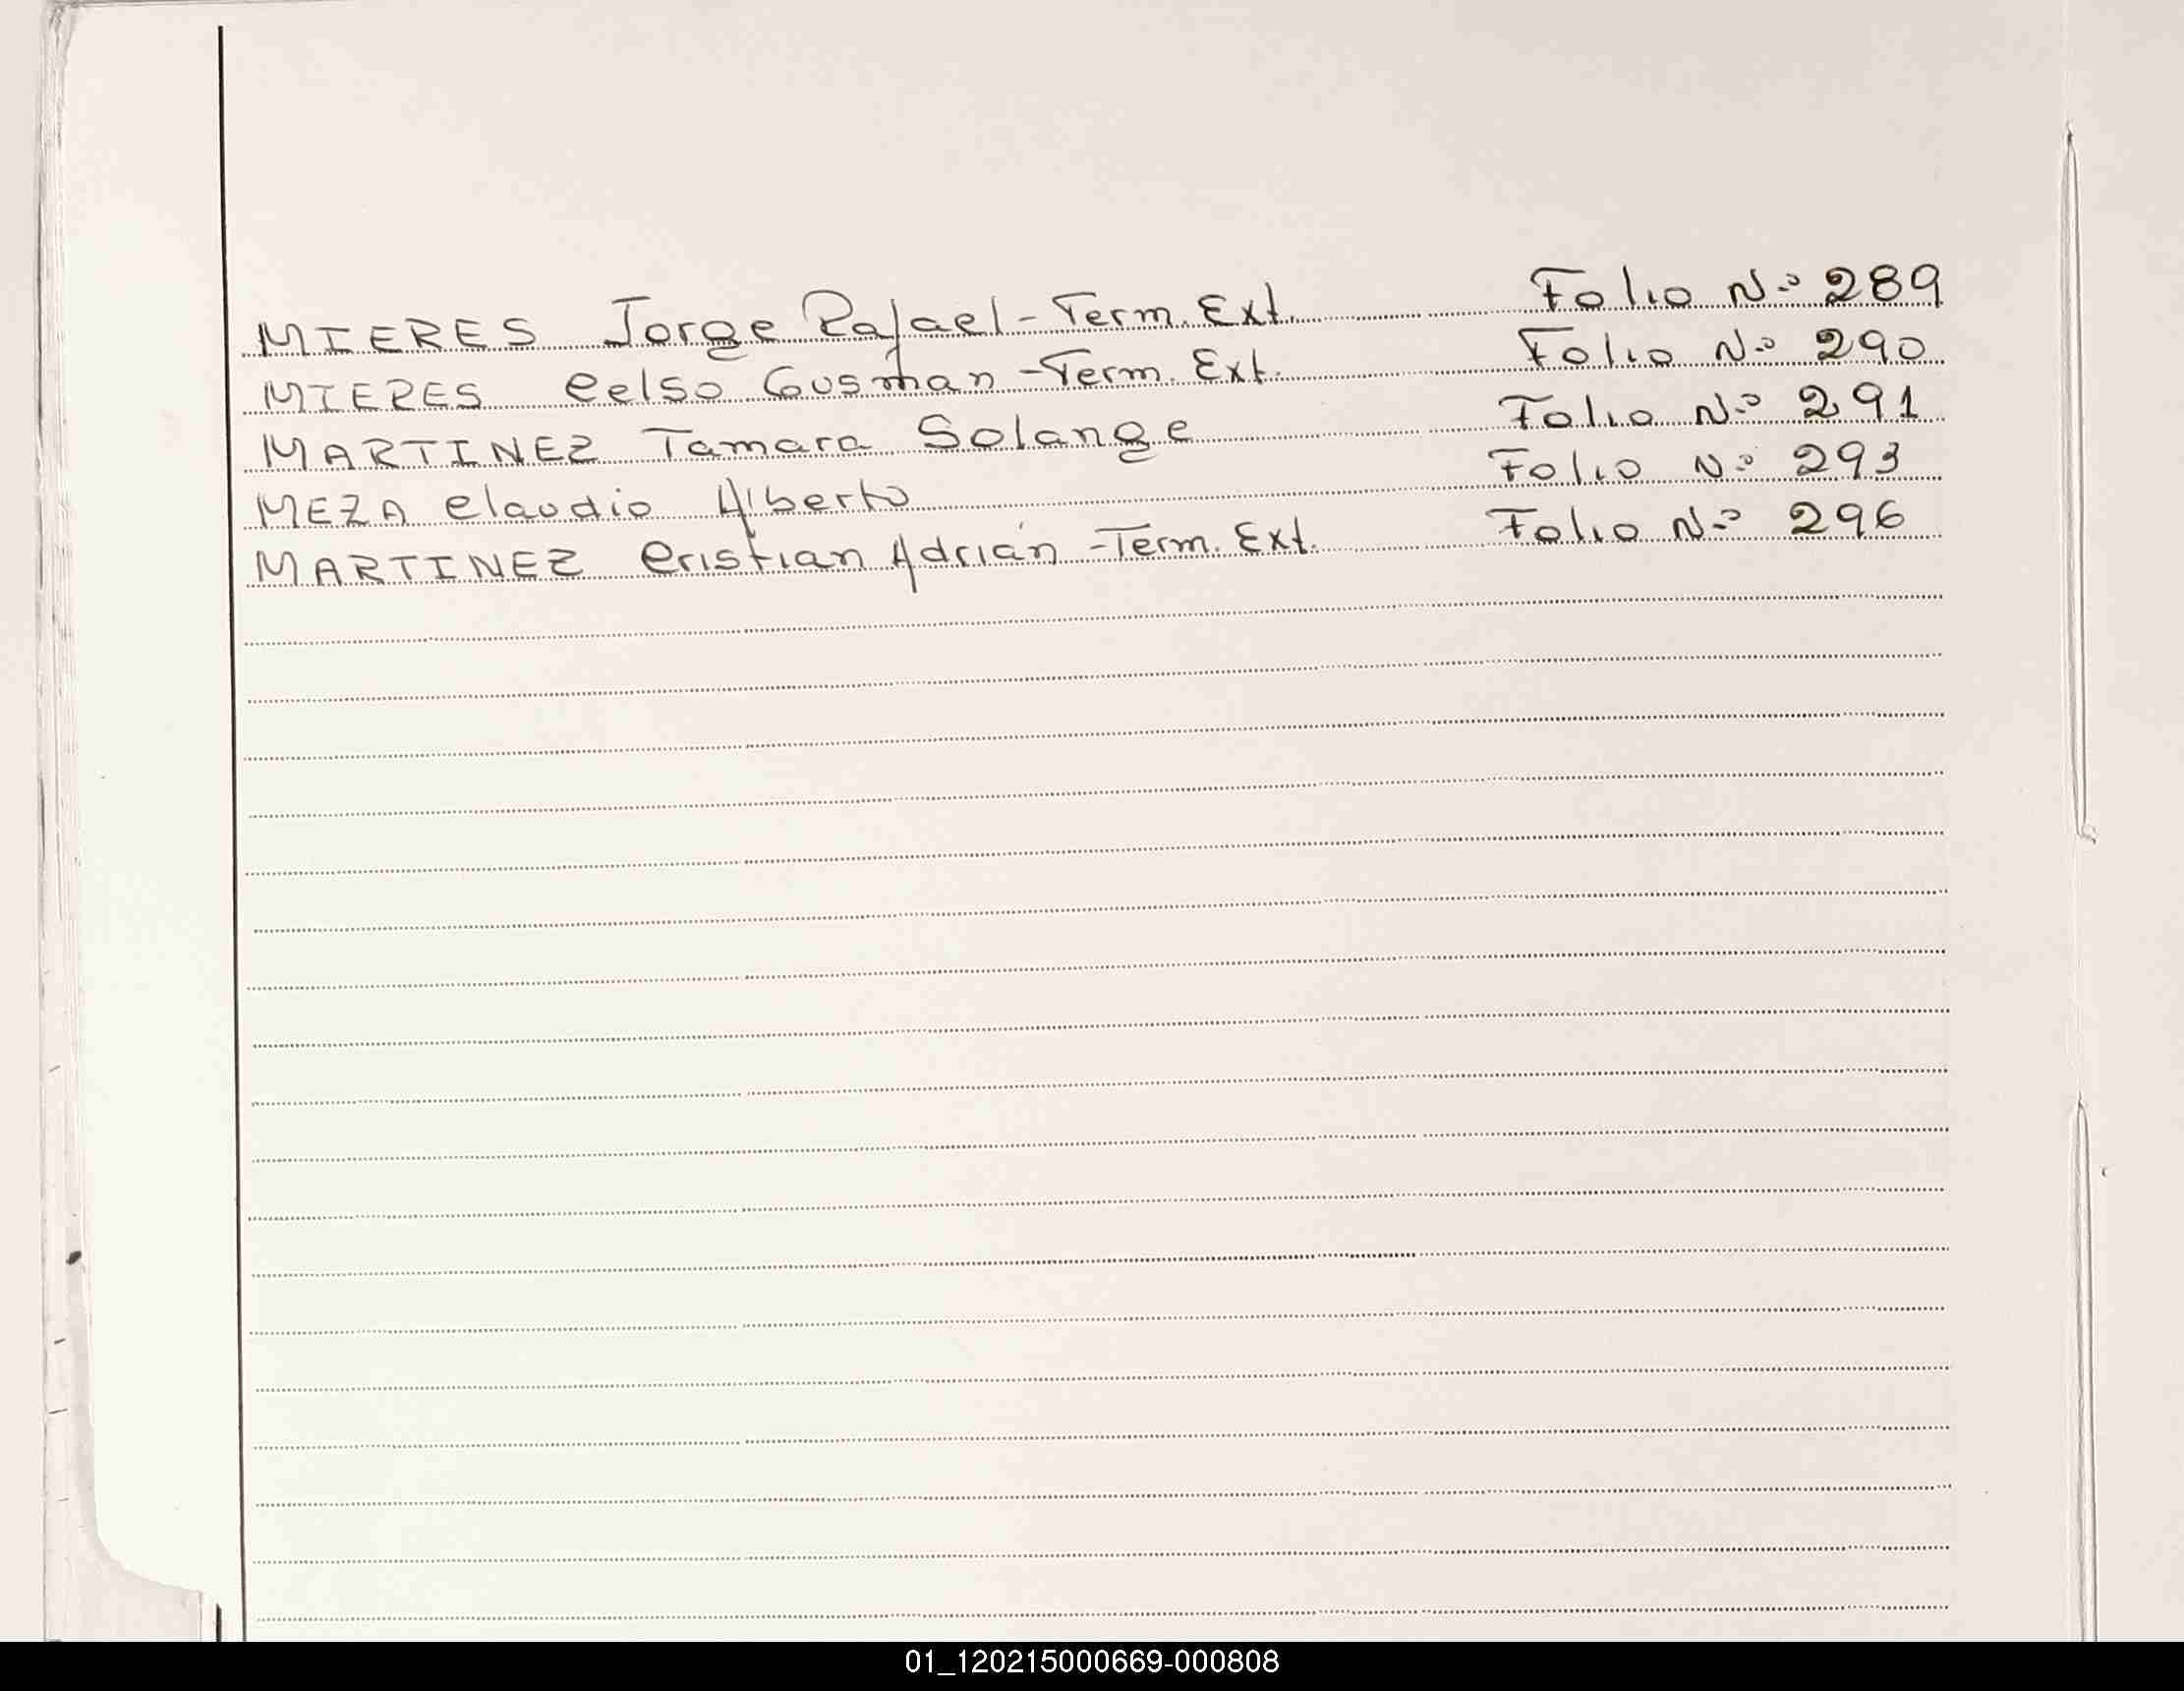 MIERES Jorge Rafael - Term. Ext. Folio Nº 289
MIERES Celso Gusman - Term. Ext. Folio Nº 290
MARTINEZ Tamara Solange Folio Nº 291
MEZA Claudio Alberto Folio Nº 293
MARTINEZ Cristian Adrián - Term. Ext. Folio Nº 296
01_120215000669-000808